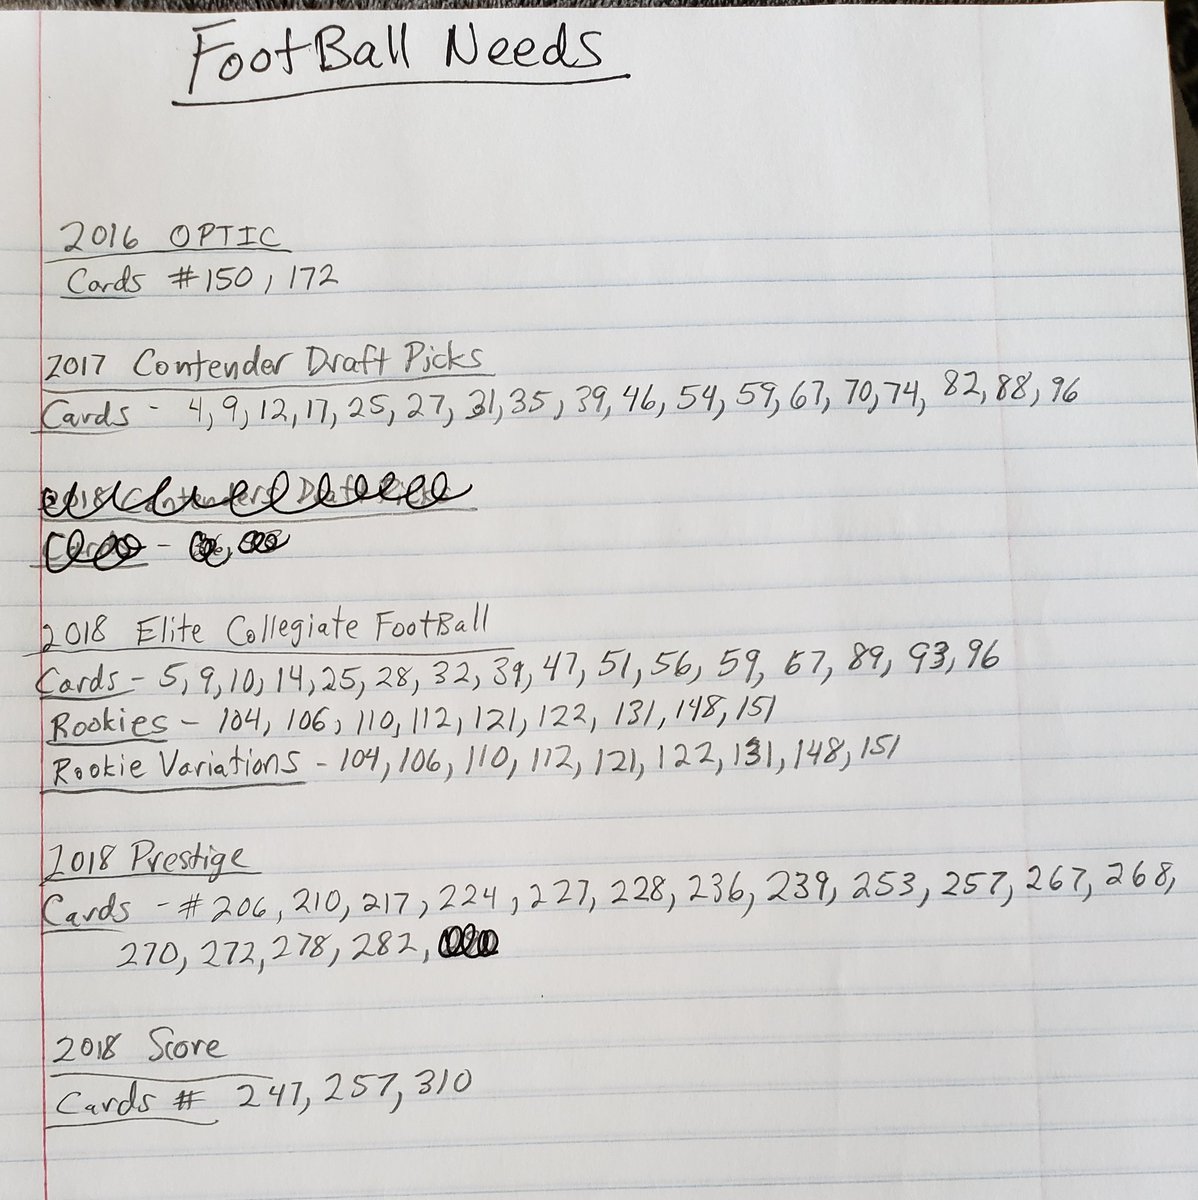 FootBall Needs
2016 OPTIC
Cards #150, 172
2017 Contender Draft Picks
Cards - 4, 9, 12, 17, 25, 27, 31, 35, 39, 46, 54, 59, 67, 70, 74, 82, 88, 96
2018 Contenders Draft Picks
2018 Elite Collegiate FootBall
Cards - 5, 9, 10, 14, 25, 28, 32, 39, 47, 51, 56, 59, 67, 89, 93, 96
Rookies - 104, 106, 110, 112, 121, 122, 131, 148, 151
Rookie Variations - 104, 106, 110, 112, 121, 122, 131, 148, 151
2018 Prestige
Cards - #206, 210, 217, 224, 227, 228, 236, 239, 253, 257, 267, 268,
270, 272, 278, 282,
2018 Score
Cards # 247, 257, 310